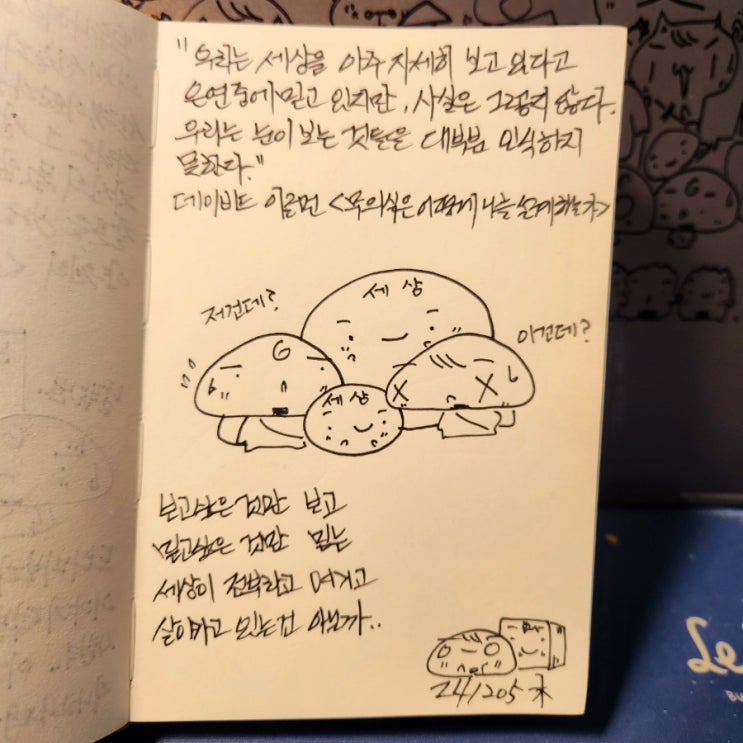 "우리는 세상을 아주 자세히 보고 있다고
은연중에 믿고 있지만, 사실은 그렇지 않다.
우리는 눈이 보는 것들을 대부분 인식하지
못한다."
데이비드 이글먼 <무의식은 어떻게 나를 설계하는가>
세상
저건데?
이건데?
세상
보고싶은 것만 보고
믿고싶은 것만 믿는
세상이 전부라고 여기고
살아가고 있는건 아닌가..
24/205 木
Le
BU